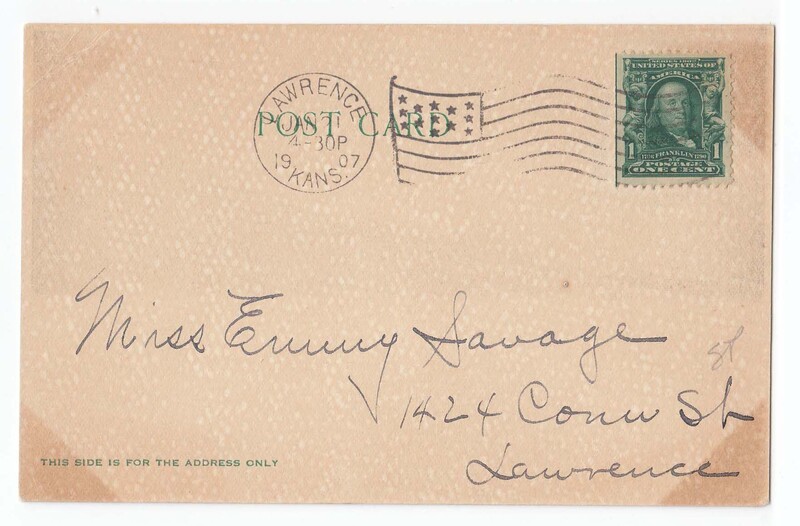 SERIES 1902
UNITED STATES OF
AMERICA
1706 FRANKLIN 1790
1 POSTAGE 1
ONE CENT
POST CARD
LAWRENCE
JAN 1
4-30P
1907
KANS.
Miss Emmy Savage
1424 Conn St
Lawrence
THIS SIDE IS FOR THE ADDRESS ONLY